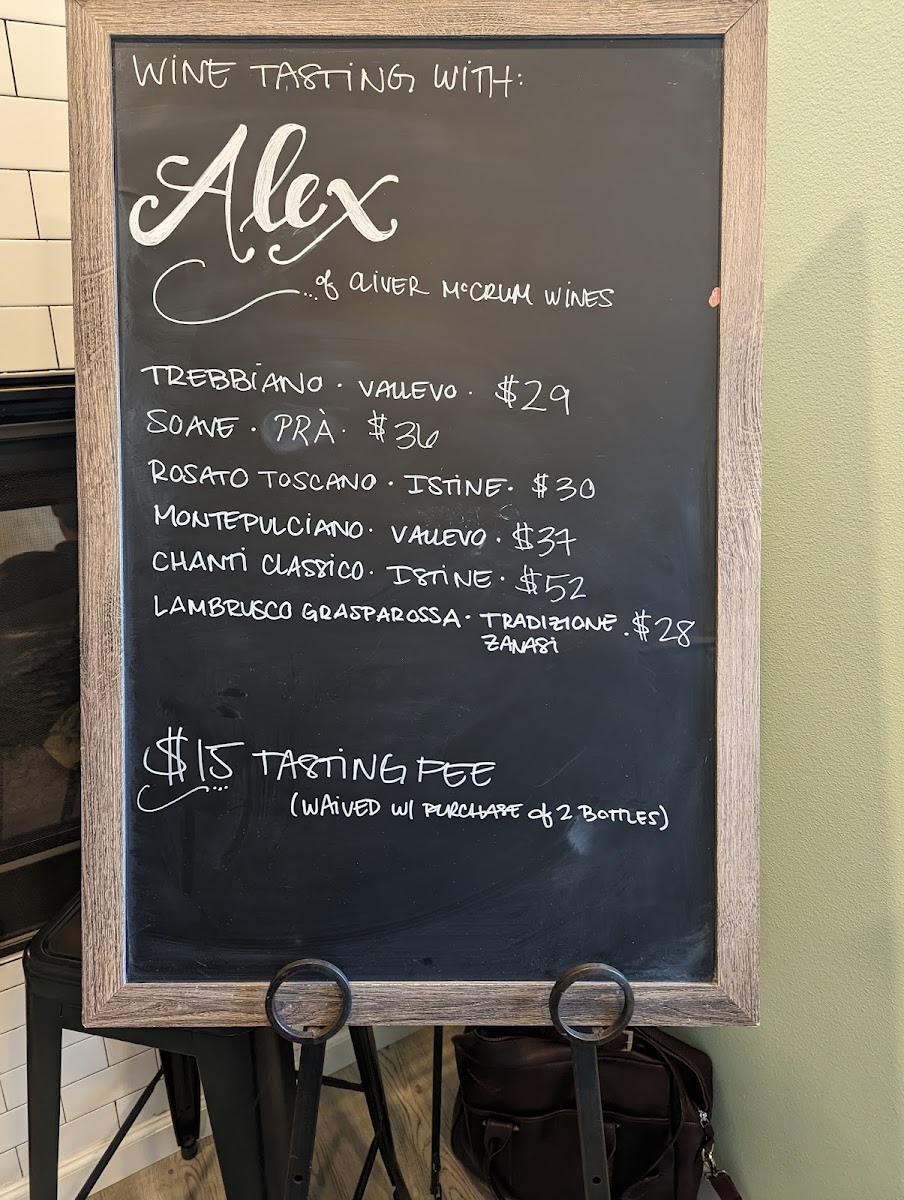 WINE TASTING WITH:
Alex
...of OLIVER McCRUM WINES
TREBBIANO · VALLEVO · $29
SOAVE · PRÀ · $36
ROSATO TOSCANO · ISTINE · $30
MONTEPULCIANO · VALLEVO · $37
CHANTI CLASSICO · ISTINE · $52
LAMBRUSCO GRASPAROSSA · TRADIZIONE · $28
ZANASI
$15 TASTING FEE
(WAIVED W/ PURCHASE of 2 BOTTLES)